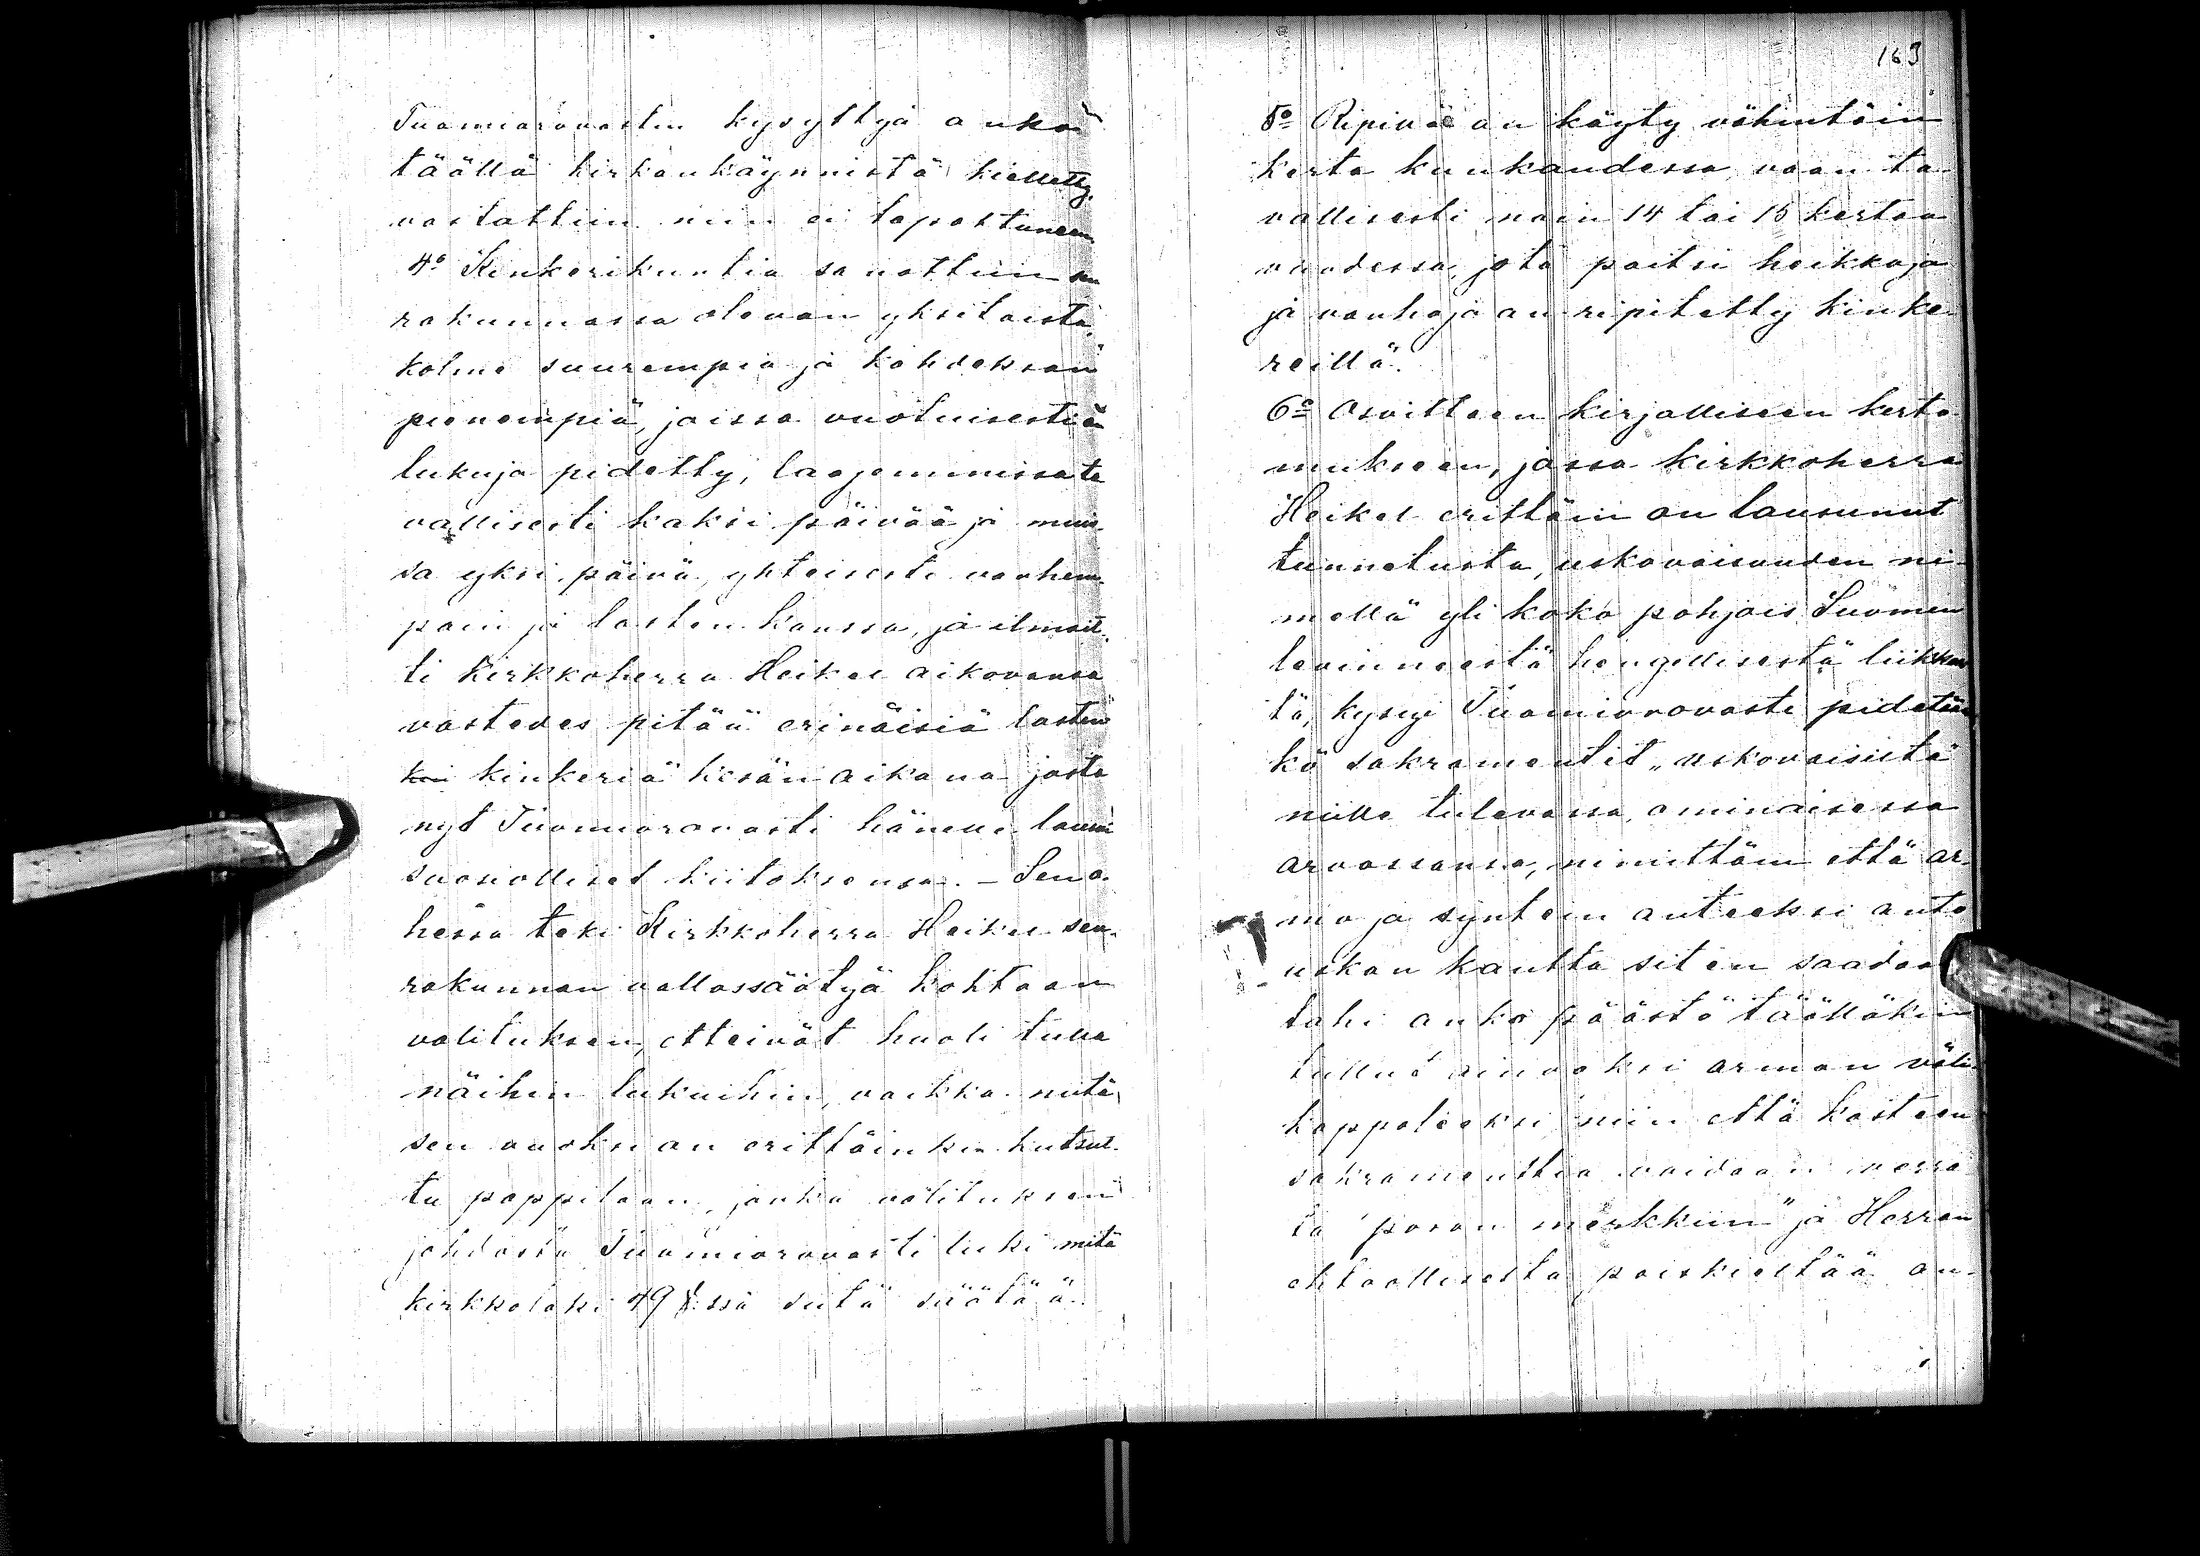 Tuomiorovastin kysyttyä onko
täällä kirkonkäynnistä kielletty,
vastattiin niin ei tapahtuneen
4:o Kinkerikuntia sanottiin seu
rakunnassa olevan yksitoista,
kolme suurempia ja kahdeksan
pienempiä, joissa vuotuisesti on
lukuja pidetty, laajemmissa ta
vallisesti kaksi päivää ja muis-
sa yksi päivä, yhteisesti vanhem-
pain ja lasten kanssa, ja ilmoit-
ti Kirkkoherra Heikel aikovansa
vastedes pitää erinäisiä lasten
kinkeriä kesän aikana josta
nyt Tuomiorovasti hänelle lausui
suosiolliset kiitoksensa. – Sen o-
hessa teki Kirkkoherra Heikel seu-
rakunnan vallassäätyä kohtaan
valituksen, etteivät huoli tulla
näihin lukuihin, vaikka mitä
sen vuoksi on erittäinkin kutsut-
tu pappilaan, jonka valituksen
johdosta Tuomiorovasti luki mitä
kirkkolaki 49 §:ssä siitä säätää.
163
5:o Ripillä on käyty vähintäin
kerta kuukaudessa, vaan ta-
vallisesti noin 14 tai 15 kertaa
vuodessa, jota paitsi heikkoja
ja vanhoja on ripitetty kinke-
reillä.
6:o Osoittaen kirjalliseen kerto-
mukseen, jossa kirkkoherra
Heikel erittäin on lausunut
tunnetusta, uskovaisuuden ni-
mellä yli koko pohjois Suomen
levinneestä hengellisestä liikkees
tä, kysyi Tuomiorovasti pidetään
kö sakramentit „uskovaisilta"
niille tulevassa, ominaisessa
arvossansa, nimittäin että ar-
mo ja syntein anteeksi anto
uskon kautta siten saadaan
tahi onko päästö täälläkin
tullut ainoaksi armon väli-
kappaleeksi niin että kasteen
sakramenttia voidaan verra
ta "poron merkkiin" ja Herran
ehtoollisesta poiskieltää an-